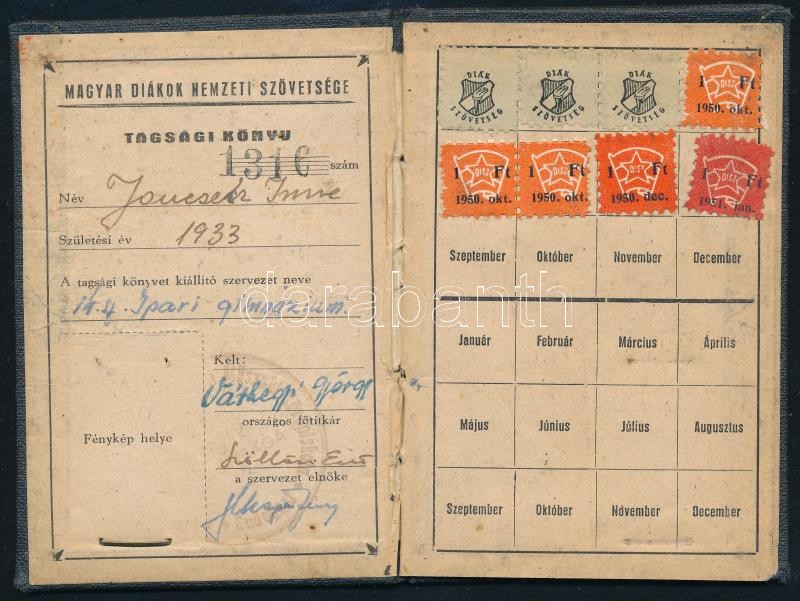 MAGYAR DIÁKOK NEMZETI SZÖVETSÉGE
TAGSÁGI KÖNYV
1316 szám
Név Imre
Születési év 1933
A tagsági könyvet kiállító szervezet neve
Ipari gimnázium.
Kelt:
Várhegyi György
országos főtitkár
a szervezet elnöke
Fénykép helye
DIÁK SZÖVETSÉG
DIÁK SZÖVETSÉG
DIÁK SZÖVETSÉG
DISZ 1 Ft 1950. okt.
DISZ 1 Ft 1950. okt.
DISZ 1 Ft 1950. okt.
DISZ 1 Ft 1950. dec.
DISZ 1 Ft 1951. jan.
Szeptember Október November December
Január Február Március Április
Május Június Július Augusztus
Szeptember Október November December
darabanth